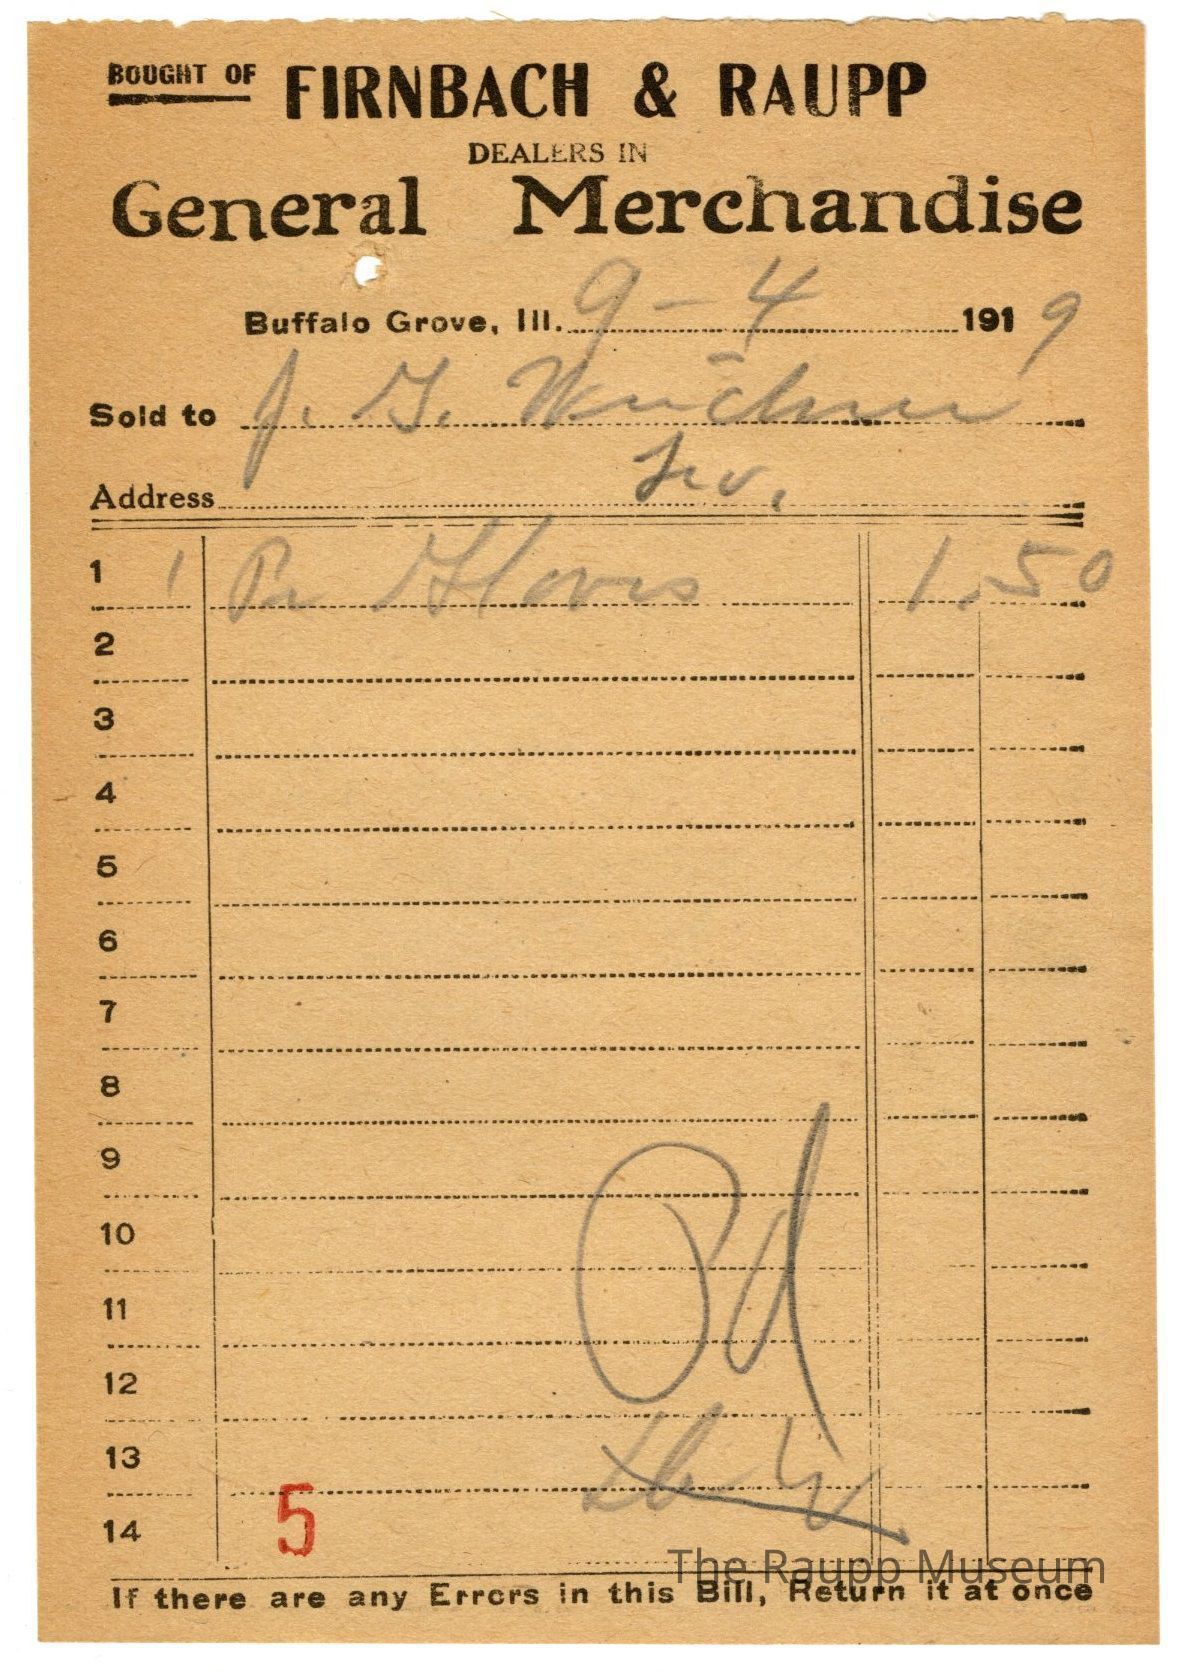 BOUGHT OF FIRNBACH & RAUPP
DEALERS IN
General Merchandise
Buffalo Grove, Ill. 9-4 1919
Sold to J. G.
Address
1 1 Pr Gloves 1.50
2
3
4
5
6
7
8
9
10
11
12
13
14
Pd
5
The Raupp Museum
If there are any Errors in this Bill, Return it at once